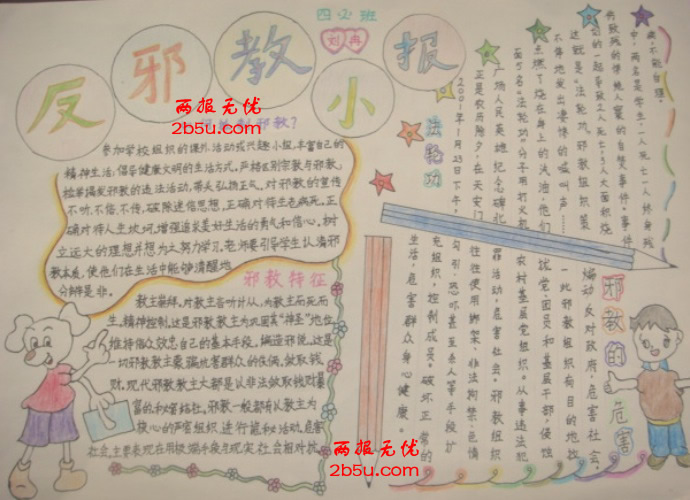 四(2)班
刘冉
反邪教小报
两报无优
2b5u.com
邪教?
参加学校组织的课外活动或兴趣小组,丰富自己的
精神生活,倡导健康文明的生活方式。严格区别宗教与邪教,
检举揭发邪教的违法活动,带头弘扬正气。对邪教的宣传
不听、不信、不传,破除迷信思想,正确对待生老病死,正
确对待人生坎坷,增强追求美好生活的勇气和信心。树
立远大的理想并想为之努力学习。老师要引导学生认清邪
教本质,使他们在生活中能够清醒地
分辨是非。
邪教特征
教主崇拜。对教主言听计从,为教主而死而
生。精神控制。这是邪教教主为巩固其“神圣”地位,
维持信众效忠自己的基本手段。编造邪说。这是
一切邪教教主蒙骗坑害群众的伎俩。敛取钱
财。现代邪教教主大都是以非法敛取钱财暴
富的。秘密结社。邪教一般都有以教主为
核心的严密组织进行。危害
社会。主要表现在用极端手段与现实社会相对抗。
法轮功
2001年1月23日下午,
正是农历除夕,在天安门
广场人民英雄纪念碑北
面5名“法轮功”分子用打火机
点燃了烧在身上的汽油,他们
不停地发出凄惨的喊叫声……
这就是“法轮功”邪教组织策
划的一起导致2人死亡、3人大面积烧
伤致残的惨绝人寰的自焚事件。事件
中,两名是学生,一人死亡,一人终身残
疾,不能自理。
邪教的危害
煽动反对政府,危害社会,
一此邪教组织有目的地拉
扰党团员和基层干部,侵蚀
农村基层党组织。从事违法犯
罪活动,危害社会。邪教组织
往往使用绑架、非法拘禁、色情
勾引、恐吓甚至杀人等手段扩
充组织,控制成员。破坏正常的
生活,危害群众身心健康。
两报无优
2b5u.com